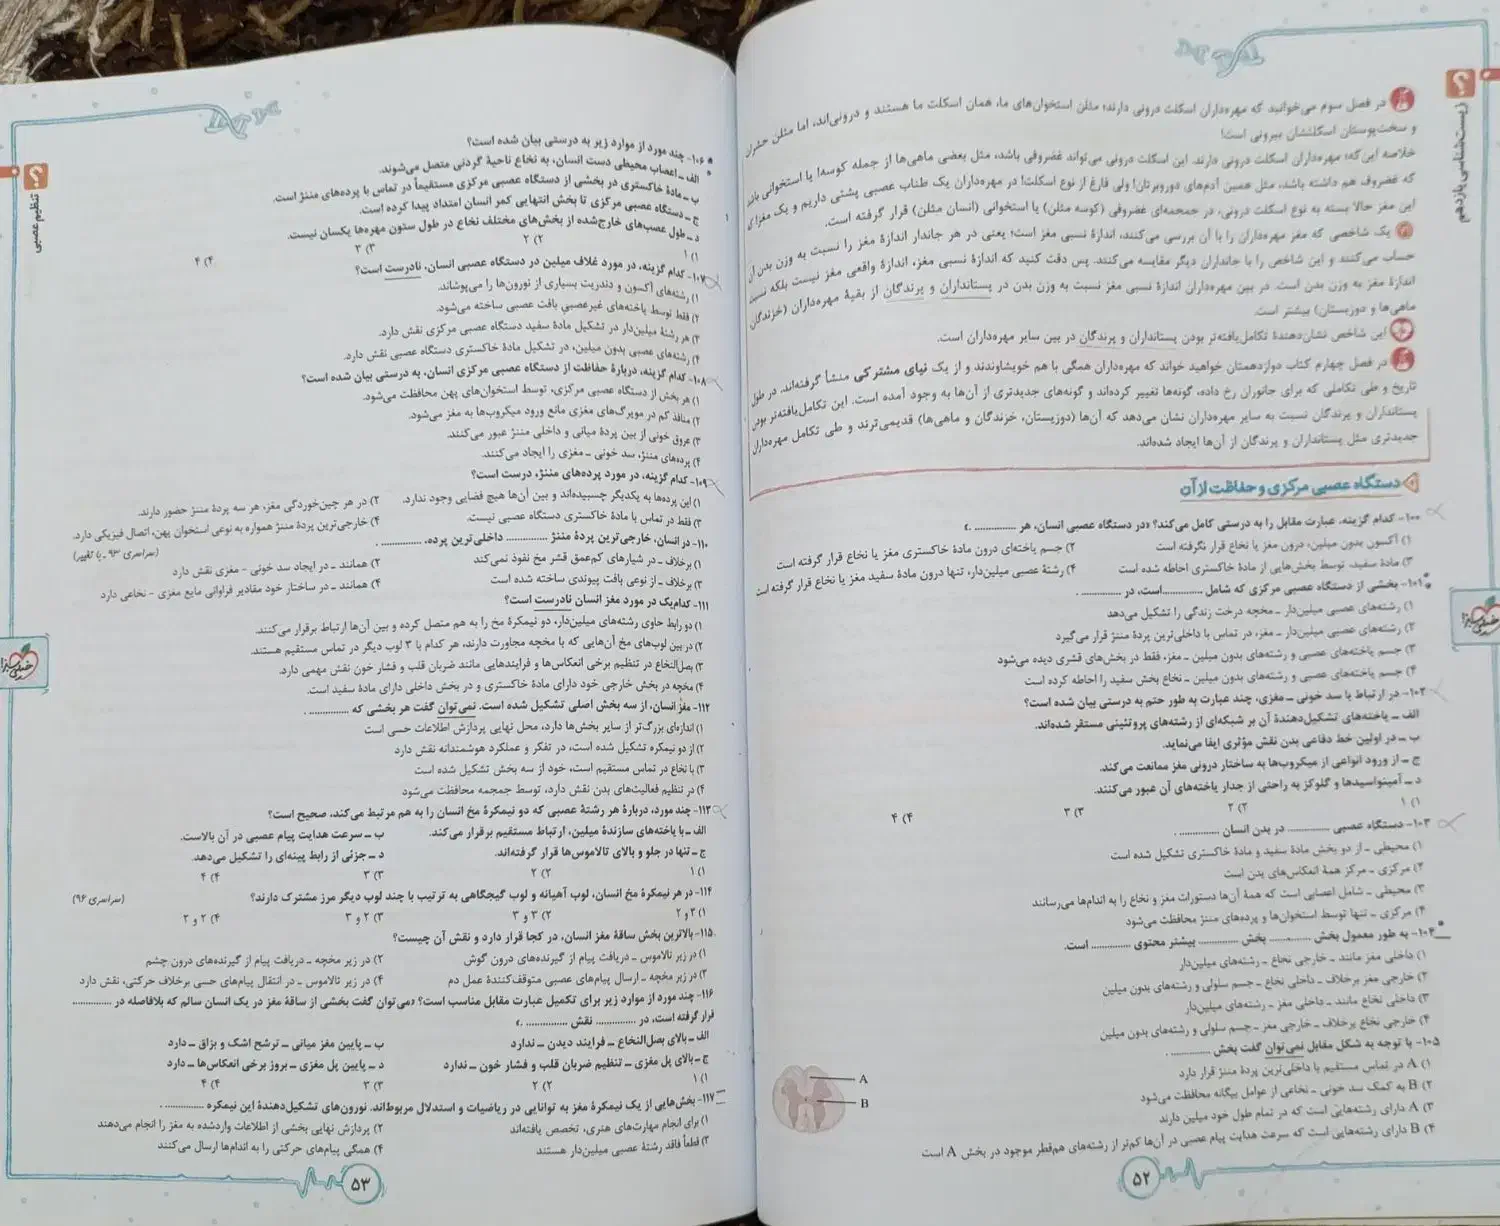 زیست‌شناسی یازدهم
در فصل سوم می‌خوانید که مهره‌داران اسکلت درونی دارند؛ مثلن استخوان‌های ما، همان اسکلت ما هستند و درونی‌اند، اما مثلن حشرات
و سخت‌پوستان اسکلتشان بیرونی است!
خلاصه این‌که؛ مهره‌داران اسکلت درونی دارند. این اسکلت درونی می‌تواند غضروفی باشد، مثل بعضی ماهی‌ها از جمله کوسه! یا استخوانی باشد
که غضروف هم داشته باشد، مثل همین آدم‌های دوروبرتان! ولی فارغ از نوع اسکلت! در مهره‌داران یک طناب عصبی پشتی داریم و یک مغز! که
این مغز حالا بسته به نوع اسکلت درونی، در جمجمه‌ای غضروفی (کوسه مثلن) یا استخوانی (انسان مثلن) قرار گرفته است.
یک شاخصی که مغز مهره‌داران را با آن بررسی می‌کنند، اندازهٔ نسبی مغز است؛ یعنی در هر جاندار اندازهٔ مغز را نسبت به وزن بدن آن
حساب می‌کنند و این شاخص را با جانداران دیگر مقایسه می‌کنند. پس دقت کنید که اندازهٔ نسبی مغز، اندازهٔ واقعی مغز نیست بلکه نسبت
اندازهٔ مغز به وزن بدن است. در بین مهره‌داران اندازهٔ نسبی مغز نسبت به وزن بدن در پستانداران و پرندگان از بقیهٔ مهره‌داران (خزندگان
ماهی‌ها و دوزیستان) بیشتر است.
این شاخص نشان‌دهندهٔ تکامل‌یافته‌تر بودن پستانداران و پرندگان در بین سایر مهره‌داران است.
در فصل چهارم کتاب دوازدهمتان خواهید خواند که مهره‌داران همگی با هم خویشاوندند و از یک نیای مشترکی منشأ گرفته‌اند. در طول
تاریخ و طی تکاملی که برای جانوران رخ داده، گونه‌ها تغییر کرده‌اند و گونه‌های جدیدتری از آن‌ها به وجود آمده است. این تکامل‌یافته‌تر بودن
پستانداران و پرندگان نسبت به سایر مهره‌داران نشان می‌دهد که آن‌ها (دوزیستان، خزندگان و ماهی‌ها) قدیمی‌ترند و طی تکامل مهره‌داران
جدیدتری مثل پستانداران و پرندگان از آن‌ها ایجاد شده‌اند.
دستگاه عصبی مرکزی و حفاظت از آن
۱۰۰- کدام گزینه، عبارت مقابل را به درستی کامل می‌کند؟ «در دستگاه عصبی انسان، هر ............... .»
۱) آکسون بدون میلین، درون مغز یا نخاع قرار نگرفته است
۲) جسم یاخته‌ای درون مادهٔ خاکستری مغز یا نخاع قرار گرفته است
۳) مادهٔ سفید، توسط بخش‌هایی از مادهٔ خاکستری احاطه شده است
۴) رشتهٔ عصبی میلین‌دار، تنها درون مادهٔ سفید مغز یا نخاع قرار گرفته است
۱۰۱- بخشی از دستگاه عصبی مرکزی که شامل ............... است، در ............... .
۱) رشته‌های عصبی میلین‌دار ـ مخچه درخت زندگی را تشکیل می‌دهد
۲) رشته‌های عصبی میلین‌دار ـ مغز، در تماس با داخلی‌ترین پردهٔ مننژ قرار می‌گیرد
۳) جسم یاخته‌های عصبی و رشته‌های بدون میلین ـ مغز، فقط در بخش‌های قشری دیده می‌شود
۴) جسم یاخته‌های عصبی و رشته‌های بدون میلین ـ نخاع بخش سفید را احاطه کرده است
۱۰۲- در ارتباط با سد خونی ـ مغزی، چند عبارت به طور حتم به درستی بیان شده است؟
الف ـ یاخته‌های تشکیل‌دهندهٔ آن بر شبکه‌ای از رشته‌های پروتئینی مستقر شده‌اند.
ب ـ در اولین خط دفاعی بدن نقش مؤثری ایفا می‌نماید.
ج ـ از ورود انواعی از میکروب‌ها به ساختار درونی مغز ممانعت می‌کند.
د ـ آمینواسیدها و گلوکز به راحتی از جدار یاخته‌های آن عبور می‌کنند.
۱) ۱ ۲) ۲ ۳) ۳ ۴) ۴
۱۰۳- دستگاه عصبی ............... در بدن انسان ............... .
۱) محیطی ـ از دو بخش مادهٔ سفید و مادهٔ خاکستری تشکیل شده است
۲) مرکزی ـ مرکز همهٔ انعکاس‌های بدن است
۳) محیطی ـ شامل اعصابی است که همهٔ آن‌ها دستورات مغز و نخاع را به اندام‌ها می‌رسانند
۴) مرکزی ـ تنها توسط استخوان‌ها و پرده‌های مننژ محافظت می‌شود
۱۰۴- به طور معمول بخش ............... بخش ............... بیشتر محتوی ............... است.
۱) داخلی مغز مانند ـ خارجی نخاع ـ رشته‌های میلین‌دار
۲) خارجی مغز برخلاف ـ داخلی نخاع ـ جسم سلولی و رشته‌های بدون میلین
۳) داخلی نخاع مانند ـ داخلی مغز ـ رشته‌های میلین‌دار
۴) خارجی نخاع برخلاف ـ خارجی مغز ـ جسم سلولی و رشته‌های بدون میلین
۱۰۵- با توجه به شکل مقابل نمی‌توان گفت بخش ............... .
۱) A در تماس مستقیم با داخلی‌ترین پردهٔ مننژ قرار دارد
۲) B به کمک سد خونی ـ نخاعی از عوامل بیگانه محافظت می‌شود
۳) A دارای رشته‌هایی است که در تمام طول خود میلین دارند
۴) B دارای رشته‌هایی است که سرعت هدایت پیام عصبی در آن‌ها کم‌تر از رشته‌های هم‌قطر موجود در بخش A است
A
B
۵۲
تنظیم عصبی
۱۰۶- چند مورد از موارد زیر به درستی بیان شده است؟
الف ـ اعصاب محیطی دست انسان، به نخاع ناحیهٔ گردنی متصل می‌شوند.
ب ـ مادهٔ خاکستری در بخشی از دستگاه عصبی مرکزی مستقیماً در تماس با پرده‌های مننژ است.
ج ـ دستگاه عصبی مرکزی تا بخش انتهایی کمر انسان امتداد پیدا کرده است.
د ـ طول عصب‌های خارج‌شده از بخش‌های مختلف نخاع در طول ستون مهره‌ها یکسان نیست.
۱) ۱ ۲) ۲ ۳) ۳ ۴) ۴
۱۰۷- کدام گزینه، در مورد غلاف میلین در دستگاه عصبی انسان، نادرست است؟
۱) رشته‌های آکسون و دندریت بسیاری از نورون‌ها را می‌پوشاند.
۲) فقط توسط یاخته‌های غیرعصبیِ بافت عصبی ساخته می‌شود.
۳) هر رشتهٔ میلین‌دار در تشکیل مادهٔ سفید دستگاه عصبی مرکزی نقش دارد.
۴) رشته‌های عصبی بدون میلین، در تشکیل مادهٔ خاکستری دستگاه عصبی نقش دارد.
۱۰۸- کدام گزینه، دربارهٔ حفاظت از دستگاه عصبی مرکزی انسان، به درستی بیان شده است؟
۱) هر بخش از دستگاه عصبی مرکزی، توسط استخوان‌های پهن محافظت می‌شود.
۲) منافذ کم در مویرگ‌های مغزی مانع ورود میکروب‌ها به مغز می‌شود.
۳) عروق خونی از بین پردهٔ میانی و داخلی مننژ عبور می‌کنند.
۴) پرده‌های مننژ، سد خونی ـ مغزی را ایجاد می‌کنند.
۱۰۹- کدام گزینه، در مورد پرده‌های مننژ، درست است؟
۱) این پرده‌ها به یکدیگر چسبیده‌اند و بین آن‌ها هیچ فضایی وجود ندارد.
۲) در هر چین‌خوردگی مغز، هر سه پردهٔ مننژ حضور دارند.
۳) فقط در تماس با مادهٔ خاکستری دستگاه عصبی نیست.
۴) خارجی‌ترین پردهٔ مننژ همواره به نوعی استخوان پهن، اتصال فیزیکی دارد.
۱۱۰- در انسان، خارجی‌ترین پردهٔ مننژ ............... داخلی‌ترین پرده، ............... .
(سراسری ۹۳ ـ با تغییر)
۱) برخلاف ـ در شیارهای کم‌عمق قشر مخ نفوذ نمی‌کند
۲) همانند ـ در ایجاد سد خونی - مغزی نقش دارد
۳) برخلاف ـ از نوعی بافت پیوندی ساخته شده است
۴) همانند ـ در ساختار خود مقادیر فراوانی مایع مغزی - نخاعی دارد
۱۱۱- کدام‌یک در مورد مغز انسان نادرست است؟
۱) دو رابط حاوی رشته‌های میلین‌دار، دو نیمکرهٔ مخ را به هم متصل کرده و بین آن‌ها ارتباط برقرار می‌کنند.
۲) در بین لوب‌های مخ آن‌هایی که با مخچه مجاورت دارند، هر کدام با ۳ لوب دیگر در تماس مستقیم هستند.
۳) بصل‌النخاع در تنظیم برخی انعکاس‌ها و فرایندهایی مانند ضربان قلب و فشار خون نقش مهمی دارد.
۴) مخچه در بخش خارجی خود دارای مادهٔ خاکستری و در بخش داخلی دارای مادهٔ سفید است.
۱۱۲- مغز انسان، از سه بخش اصلی تشکیل شده است. نمی‌توان گفت هر بخشی که ............... .
۱) اندازه‌ای بزرگ‌تر از سایر بخش‌ها دارد، محل نهایی پردازش اطلاعات حسی است
۲) از دو نیمکره تشکیل شده است، در تفکر و عملکرد هوشمندانه نقش دارد
۳) با نخاع در تماس مستقیم است، خود از سه بخش تشکیل شده است
۴) در تنظیم فعالیت‌های بدن نقش دارد، توسط جمجمه محافظت می‌شود
۱۱۳- چند مورد، دربارهٔ هر رشتهٔ عصبی که دو نیمکرهٔ مخ انسان را به هم مرتبط می‌کند، صحیح است؟
الف ـ با یاخته‌های سازندهٔ میلین، ارتباط مستقیم برقرار می‌کند.
ب ـ سرعت هدایت پیام عصبی در آن بالاست.
ج ـ تنها در جلو و بالای تالاموس‌ها قرار گرفته‌اند.
د ـ جزئی از رابط پینه‌ای را تشکیل می‌دهد.
۱) ۱ ۲) ۲ ۳) ۳ ۴) ۴
۱۱۴- در هر نیمکرهٔ مخ انسان، لوب آهیانه و لوب گیجگاهی به ترتیب با چند لوب دیگر مرز مشترک دارند؟ (سراسری ۹۶)
۱) ۳ و ۲ ۲) ۳ و ۳ ۳) ۲ و ۳ ۴) ۲ و ۲
۱۱۵- بالاترین بخش ساقهٔ مغز انسان، در کجا قرار دارد و نقش آن چیست؟
۱) در زیر تالاموس ـ دریافت پیام از گیرنده‌های درون گوش
۲) در زیر مخچه ـ دریافت پیام از گیرنده‌های درون چشم
۳) در زیر مخچه ـ ارسال پیام‌های عصبی متوقف‌کنندهٔ عمل دم
۴) در زیر تالاموس ـ در انتقال پیام‌های حسی برخلاف حرکتی، نقش دارد
۱۱۶- چند مورد از موارد زیر برای تکمیل عبارت مقابل مناسب است؟ «می‌توان گفت بخشی از ساقهٔ مغز در یک انسان سالم که بلافاصله در ...............
قرار گرفته است، در ............... نقش ............... .»
الف ـ بالای بصل‌النخاع ـ فرایند دیدن ـ ندارد
ب ـ پایین مغز میانی ـ ترشح اشک و بزاق ـ دارد
ج ـ بالای پل مغزی ـ تنظیم ضربان قلب و فشار خون ـ ندارد
د ـ پایین پل مغزی ـ بروز برخی انعکاس‌ها ـ دارد
۱) ۱ ۲) ۲ ۳) ۳ ۴) ۴
۱۱۷- بخش‌هایی از یک نیمکرهٔ مغز به توانایی در ریاضیات و استدلال مربوط‌اند. نورون‌های تشکیل‌دهندهٔ این نیمکره ............... .
۱) برای انجام مهارت‌های هنری، تخصص یافته‌اند
۲) پردازش نهایی بخشی از اطلاعات واردشده به مغز را انجام می‌دهند
۳) قطعاً فاقد رشتهٔ عصبی میلین‌دار هستند
۴) همگی پیام‌های حرکتی را به اندام‌ها ارسال می‌کنند
۵۳